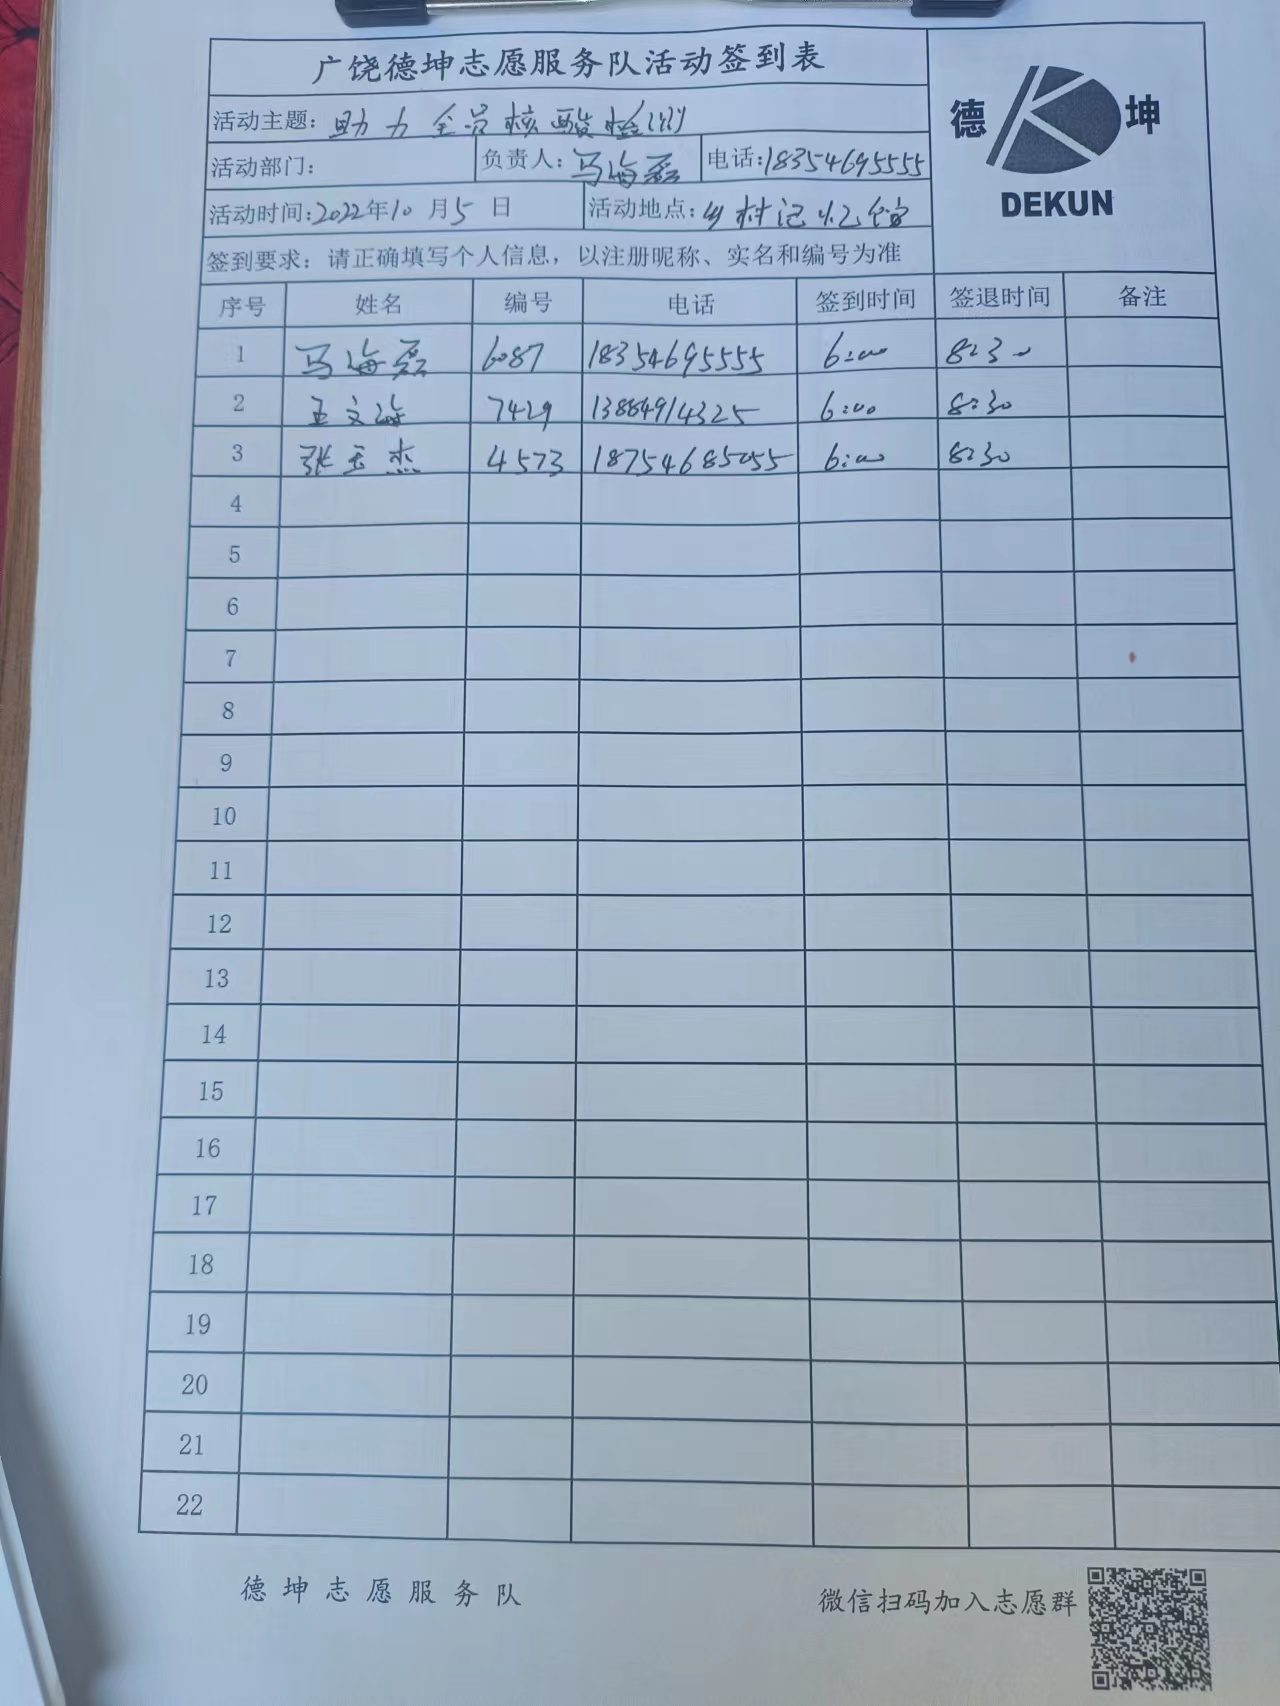 广饶德坤志愿服务队活动签到表
德 坤
DEKUN
活动主题：助力全员核酸检测
活动部门： 负责人：马海磊 电话：18354695555
活动时间：2022年10月5日 活动地点：乡村记忆馆
签到要求：请正确填写个人信息，以注册昵称、实名和编号为准
序号 姓名 编号 电话 签到时间 签退时间 备注
1 马海磊 6087 18354695555 6:00 8:30
2 王文海 7429 13884914325 6:00 8:30
3 张玉杰 4573 18754685055 6:00 8:30
4
5
6
7
8
9
10
11
12
13
14
15
16
17
18
19
20
21
22
德坤志愿服务队 微信扫码加入志愿群